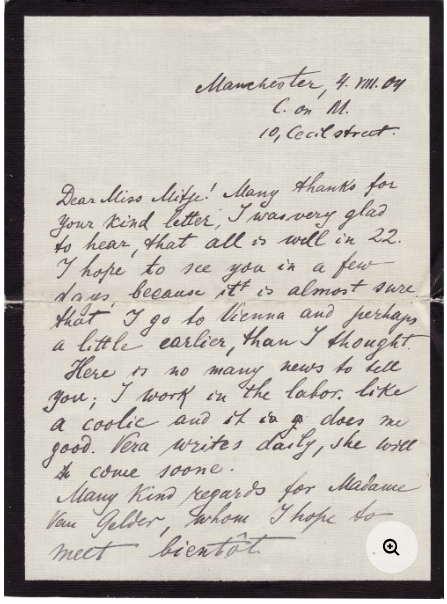 Manchester, 4. VIII. 04
C. on M.
10, Cecil street.
Dear Miss Mitje! Many thanks for
your kind letter, I was very glad
to hear, that all is well in 22.
I hope to see you in a few
days, because it is almost sure
that I go to Vienna and perhaps
a little earlier, than I thought.
Here is no many news to tell
you; I work in the labor. like
a coolie and it does me
good. Vera writes daily, she will
come soone.
Many kind regards for Madame
Van Gelder, whom I hope to
meet bientôt